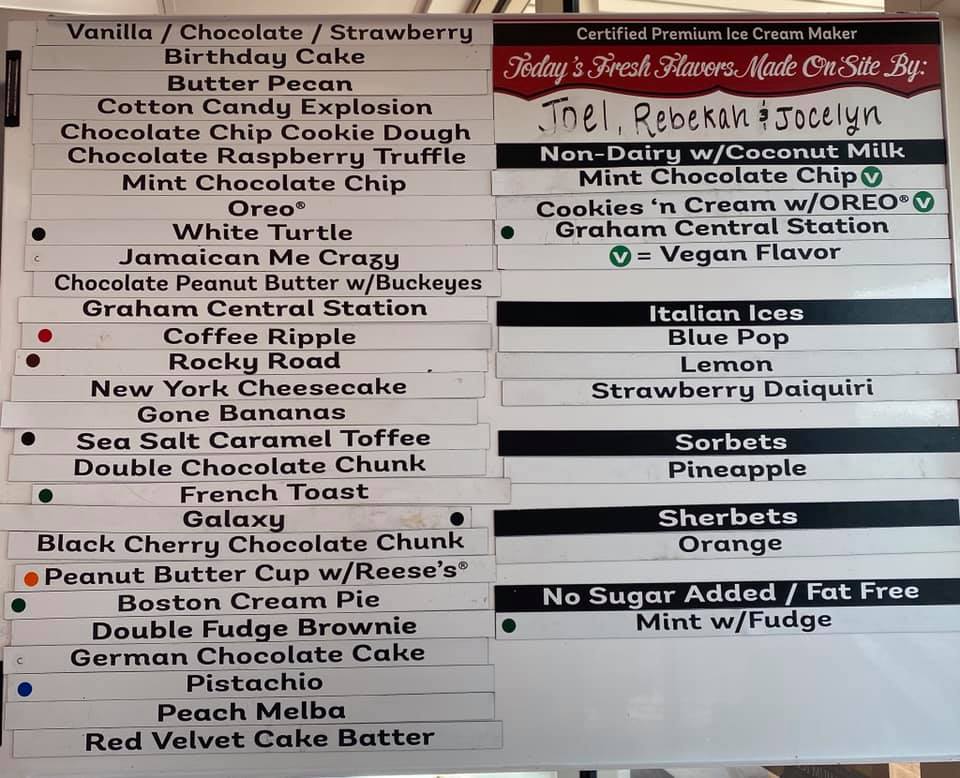 Vanilla / Chocolate / Strawberry
Birthday Cake
Butter Pecan
Cotton Candy Explosion
Chocolate Chip Cookie Dough
Chocolate Raspberry Truffle
Mint Chocolate Chip
Oreo®
White Turtle
c Jamaican Me Crazy
Chocolate Peanut Butter w/Buckeyes
Graham Central Station
Coffee Ripple
Rocky Road
New York Cheesecake
Gone Bananas
Sea Salt Caramel Toffee
Double Chocolate Chunk
French Toast
Galaxy
Black Cherry Chocolate Chunk
Peanut Butter Cup w/Reese's®
Boston Cream Pie
Double Fudge Brownie
c German Chocolate Cake
Pistachio
Peach Melba
Red Velvet Cake Batter
Certified Premium Ice Cream Maker
Today's Fresh Flavors Made On Site By:
Joel, Rebekah & Jocelyn
Non-Dairy w/Coconut Milk
Mint Chocolate Chip V
Cookies ‘n Cream w/OREO® V
Graham Central Station
V = Vegan Flavor
Italian Ices
Blue Pop
Lemon
Strawberry Daiquiri
Sorbets
Pineapple
Sherbets
Orange
No Sugar Added / Fat Free
Mint w/Fudge